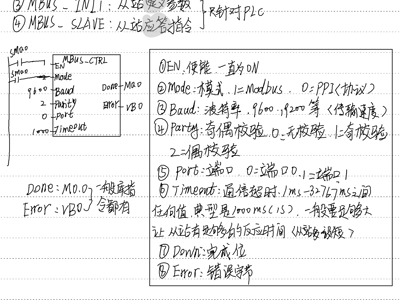 ③ MBUS_INIT: 从站定义参数
④ MBUS_SLAVE: 从站应答指令
只针对PLC
SM0.0
MBUS_CTRL
EN
SM0.0
Mode
9600 Baud Done M0.0
2 Parity Error VB0
0 Port
1000 Timeout
Done: M0.0
Error: VB0
一般两者
全都有
① EN: 使能, 一直为ON
② Mode: 模式, 1=Modbus, 0=PPI(协议)
③ Baud: 波特率, 9600, 19200等 (传输速度)
④ Party: 奇偶校验 0=无校验, 1=奇校验
2=偶校验
⑤ Port: 端口, 0=端口0, 1=端口1
⑥ Timeout: 通信超时, 1ms-32767ms之间
任何值, 典型是1000ms(1S), 一般要足够大
让从站有足够的反应时间
⑦ Down: 完成位
⑧ Error: 错误字节